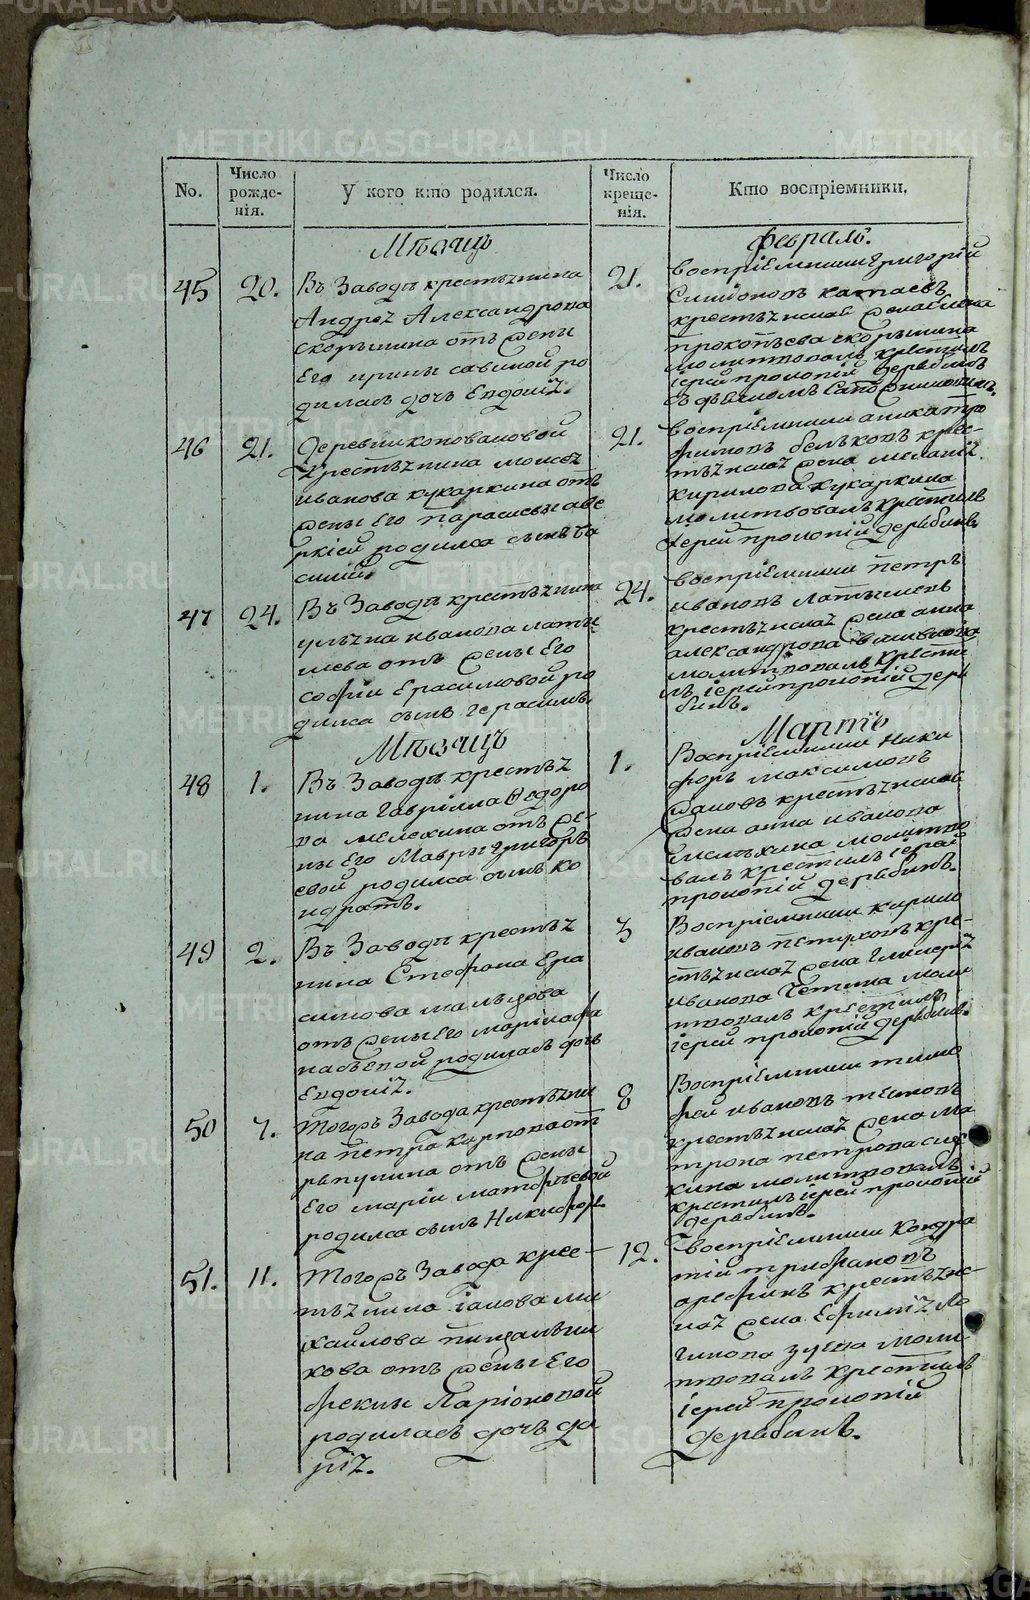 METRIKI.GASO-URAL.RU
No.
Число рожденія.
У кого кто родился.
Число крещенія.
Кто воспріемники.
Мѣсяцъ
Февраль.
45
20.
Въ Заводѣ крестьянина
Андрея Александрова
скорынина отъ жены
Его ирины савиной ро
дилась дочь Евдокія.
21.
Воспріемники григорій
Симионовъ катаевъ
крестьянская жена
прокопьева скорынина
молитвовалъ крестилъ
іерей прокопій дерябинъ
46
21.
деревни коноваловой
крестьянина моисея
иванова кукаркина отъ
жены Его парасковьи аве
ркіей родился сынъ ва
силій.
21.
Воспріемники аника тро
фимовъ бельковъ крес-
тьянская жена меланія
кирилова кукаркина
молитвовалъ крестилъ
іерей прокопій дерябинъ
47
24.
Въ Заводѣ крестьянина
ульяна иванова латы
шева отъ жены Его
софіи Ерасимовой ро
дился сынъ герасимъ.
24.
Воспріемники петръ
ивановъ латышевъ
крестьянская жена анна
александрова
молитвовалъ крести
лъ іерей прокопій деря
бинъ.
Мѣсяцъ
Мартъ
48
1.
Въ Заводѣ крестья
нина гаврілла Ѳедоро
ва мелехина отъ же-
ны Его Мавры григорь
евой родился сынъ ко
ндратъ.
1.
Воспріемники Ники
форъ максимовъ
крестьянская
жена анна иванова
молитво
валъ крестилъ іерей
прокопій дерябинъ.
49
2.
Въ Заводѣ крестья
нина Стефана Ера
симова мальцова
отъ жены Его маріи афа
насьевой родилась дочь
Евдокія.
3
Воспріемники кирило
ивановъ петуховъ кре-
стьянская жена гликерія
иванова
моли
твовалъ крестилъ
іерей прокопій дерябинъ.
50
7.
Тогожъ Завода крестьяни
на петра карпова от
рыпулина отъ жены
Его маріи матфѣевой
родился сынъ Никифоръ.
8
Воспріемники тимо
фей ивановъ
крестьянская жена ма
трона петрова
молитвовалъ
крестилъ іерей прокопій
дерябинъ.
51.
11.
Тогожъ Завода крес-
тьянина іакова ми
хайлова пищальни
кова отъ жены Его
феклы Ларіоновой
родилась дочь да
рія.
12.
Воспріемники Кондра
тій трифановъ
арефинъ крестьянс-
кая жена Ефимія Ло
гинова зуева моли
твовалъ крестилъ
іерей прокопій
дерябинъ.